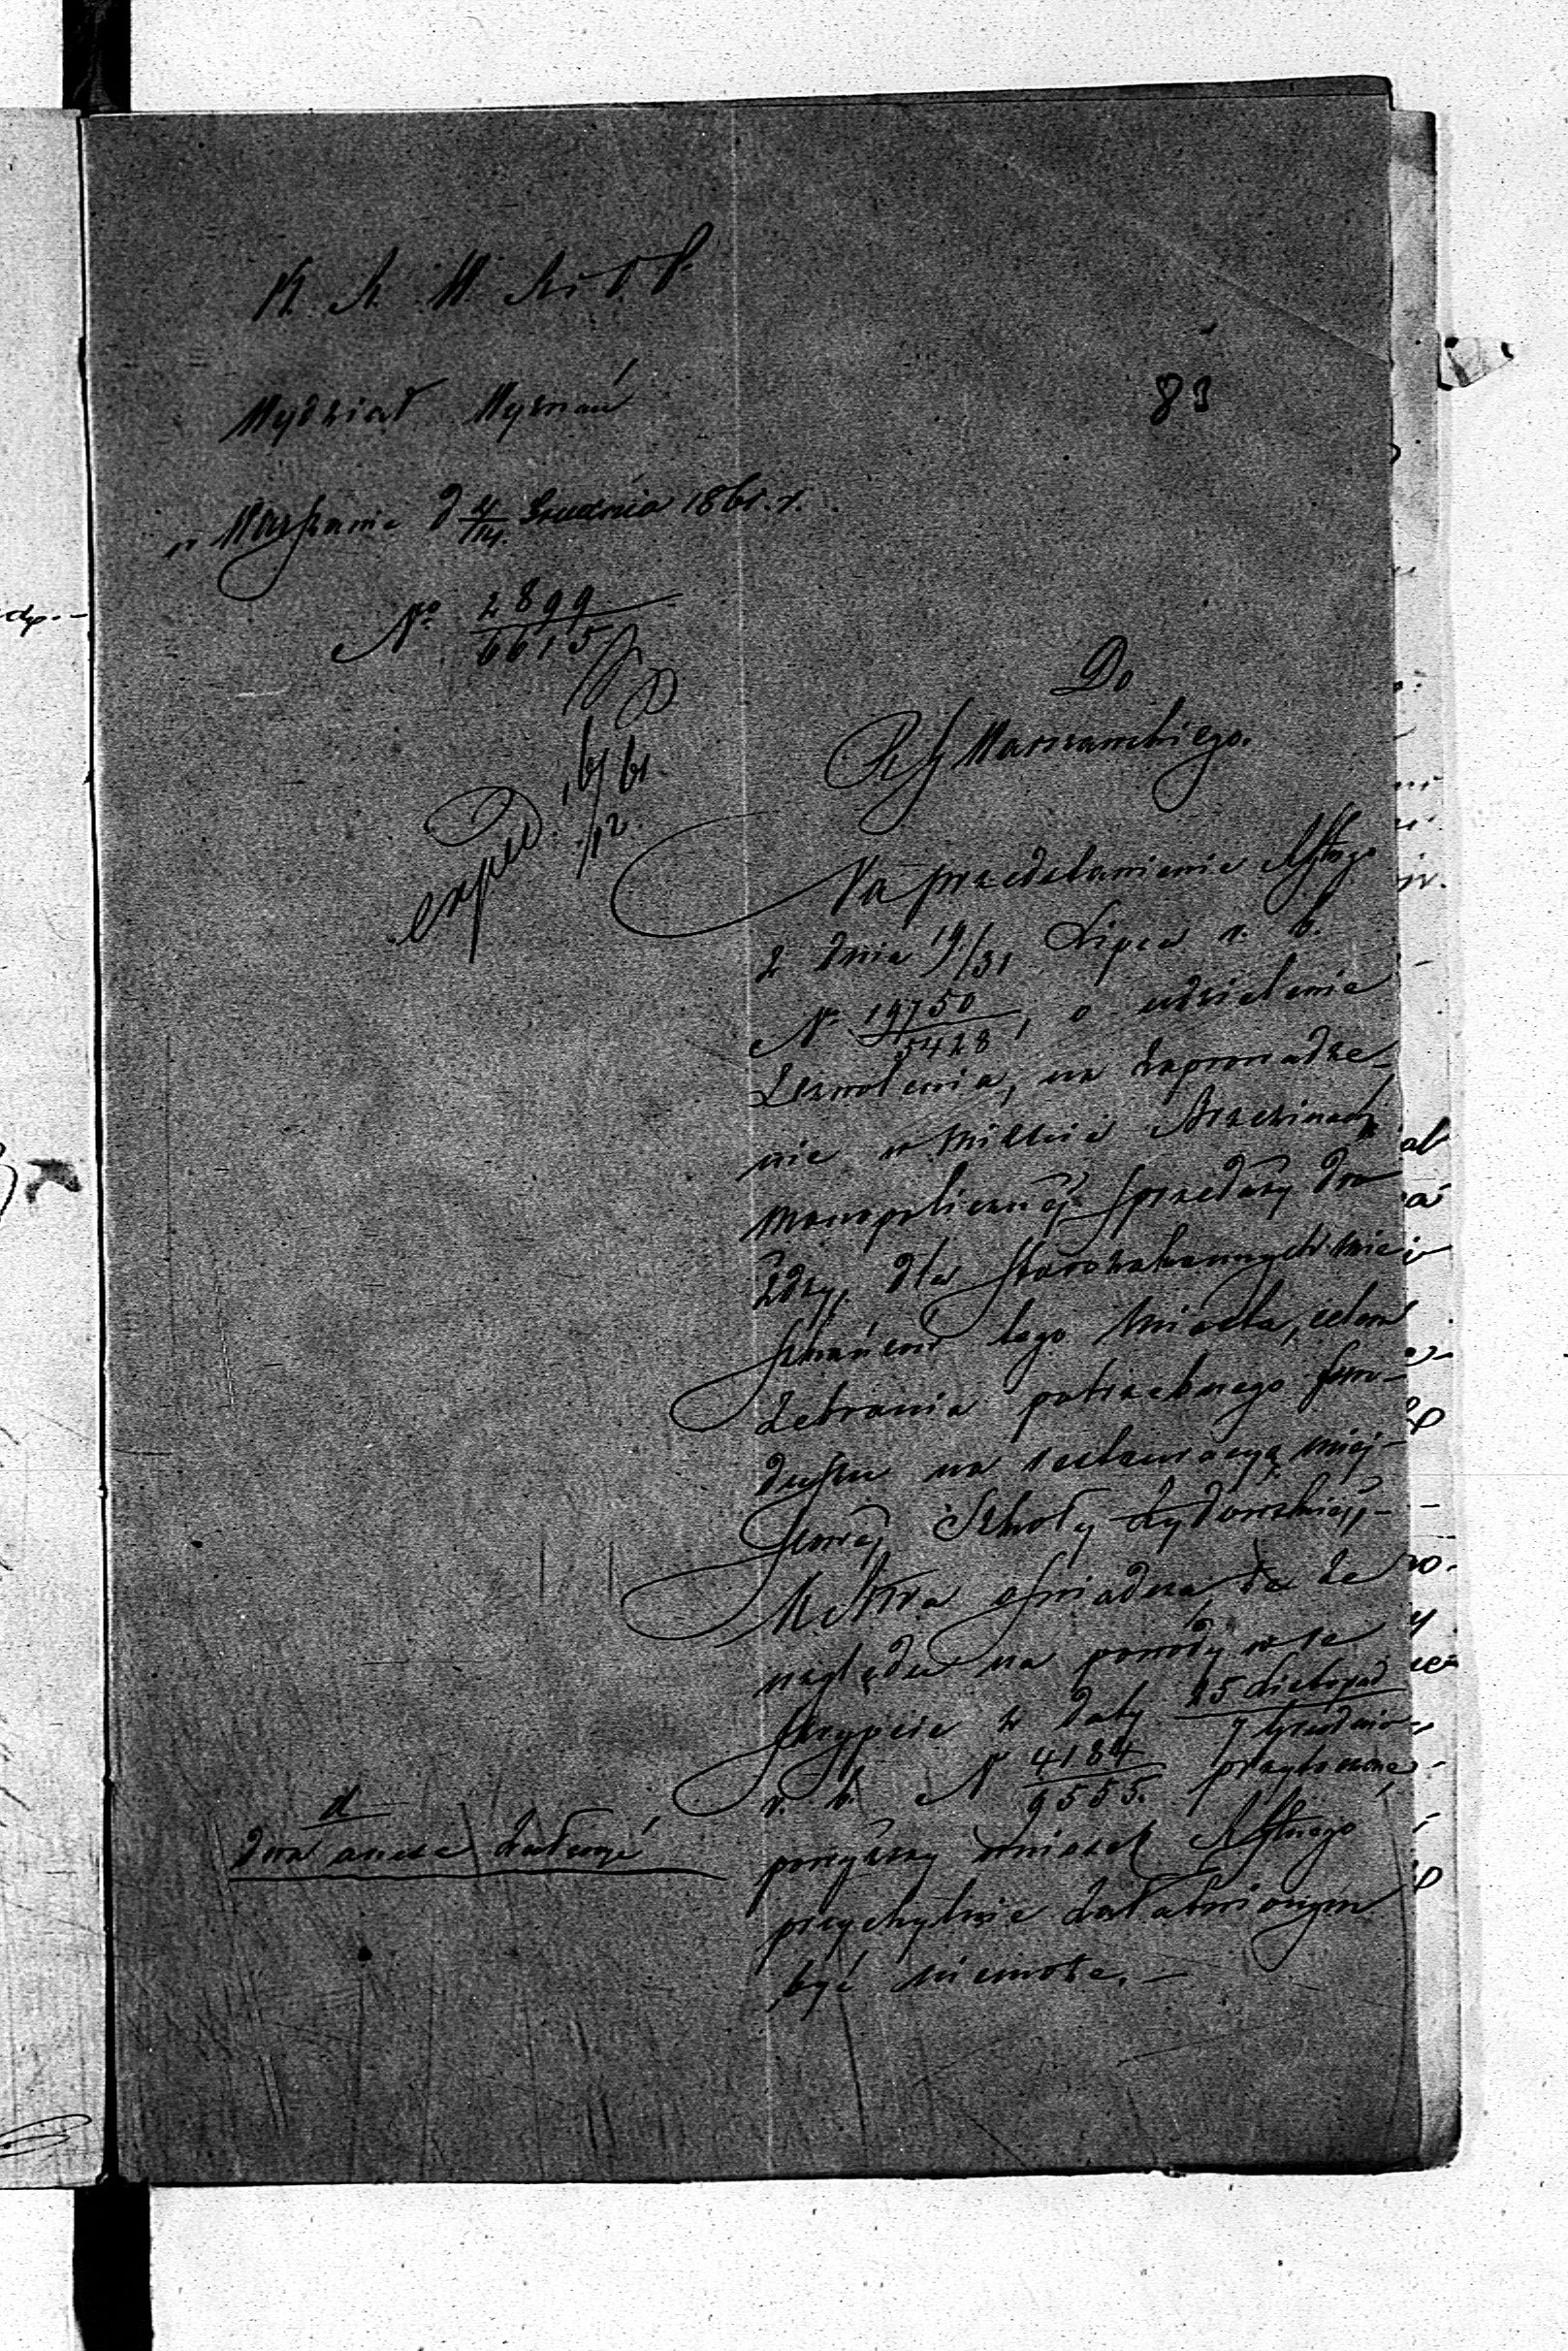 K. R. W. R. i D. P.
83
Wydział Wyznań
w Warszawie d 2/14. Grudnia 1861. r.
No 2899
6615
exped. 16/12 61.
Do
Rz G Warszawskiego.
Na przedstawienie
z dnia 19/31 Lipca r. b.
N. 19750/5428, o udzielenie
zezwolenia, na zaprowadze-
nie w mieście Brzezinach
monopolicznéj sprzedaży dro-
żdży, dla starozakonnych mie-
szkańców tego miasta, celem
zebrania potrzebnego fun-
duszu na restauracyą miej-
scowéj Szkoły Żydowskiéj,-
oświadcza że ze
względu na powody w re
skrypcie z daty 25 Listopad / 7 Grudnia
r. b. N 4184/9555. przytoczone,
powyższy wniosek
przychylnie załatwionym
być niemoże. —
d
dwa anexa